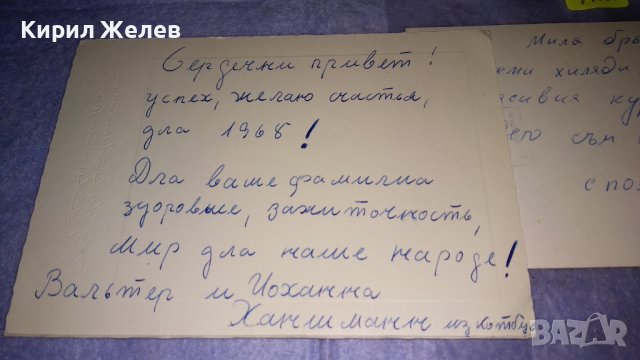 Кирил Желев
Сердечни привет!
успех, желаю счастья,
дла 1968!
Дла ваше фамилиа
здоровье, зажиточность,
Мир дла наше народе!
Вальтер и Иоханна
Ханшманн из Котбус
Мила
хиляди
сън
с поз
BAZAR